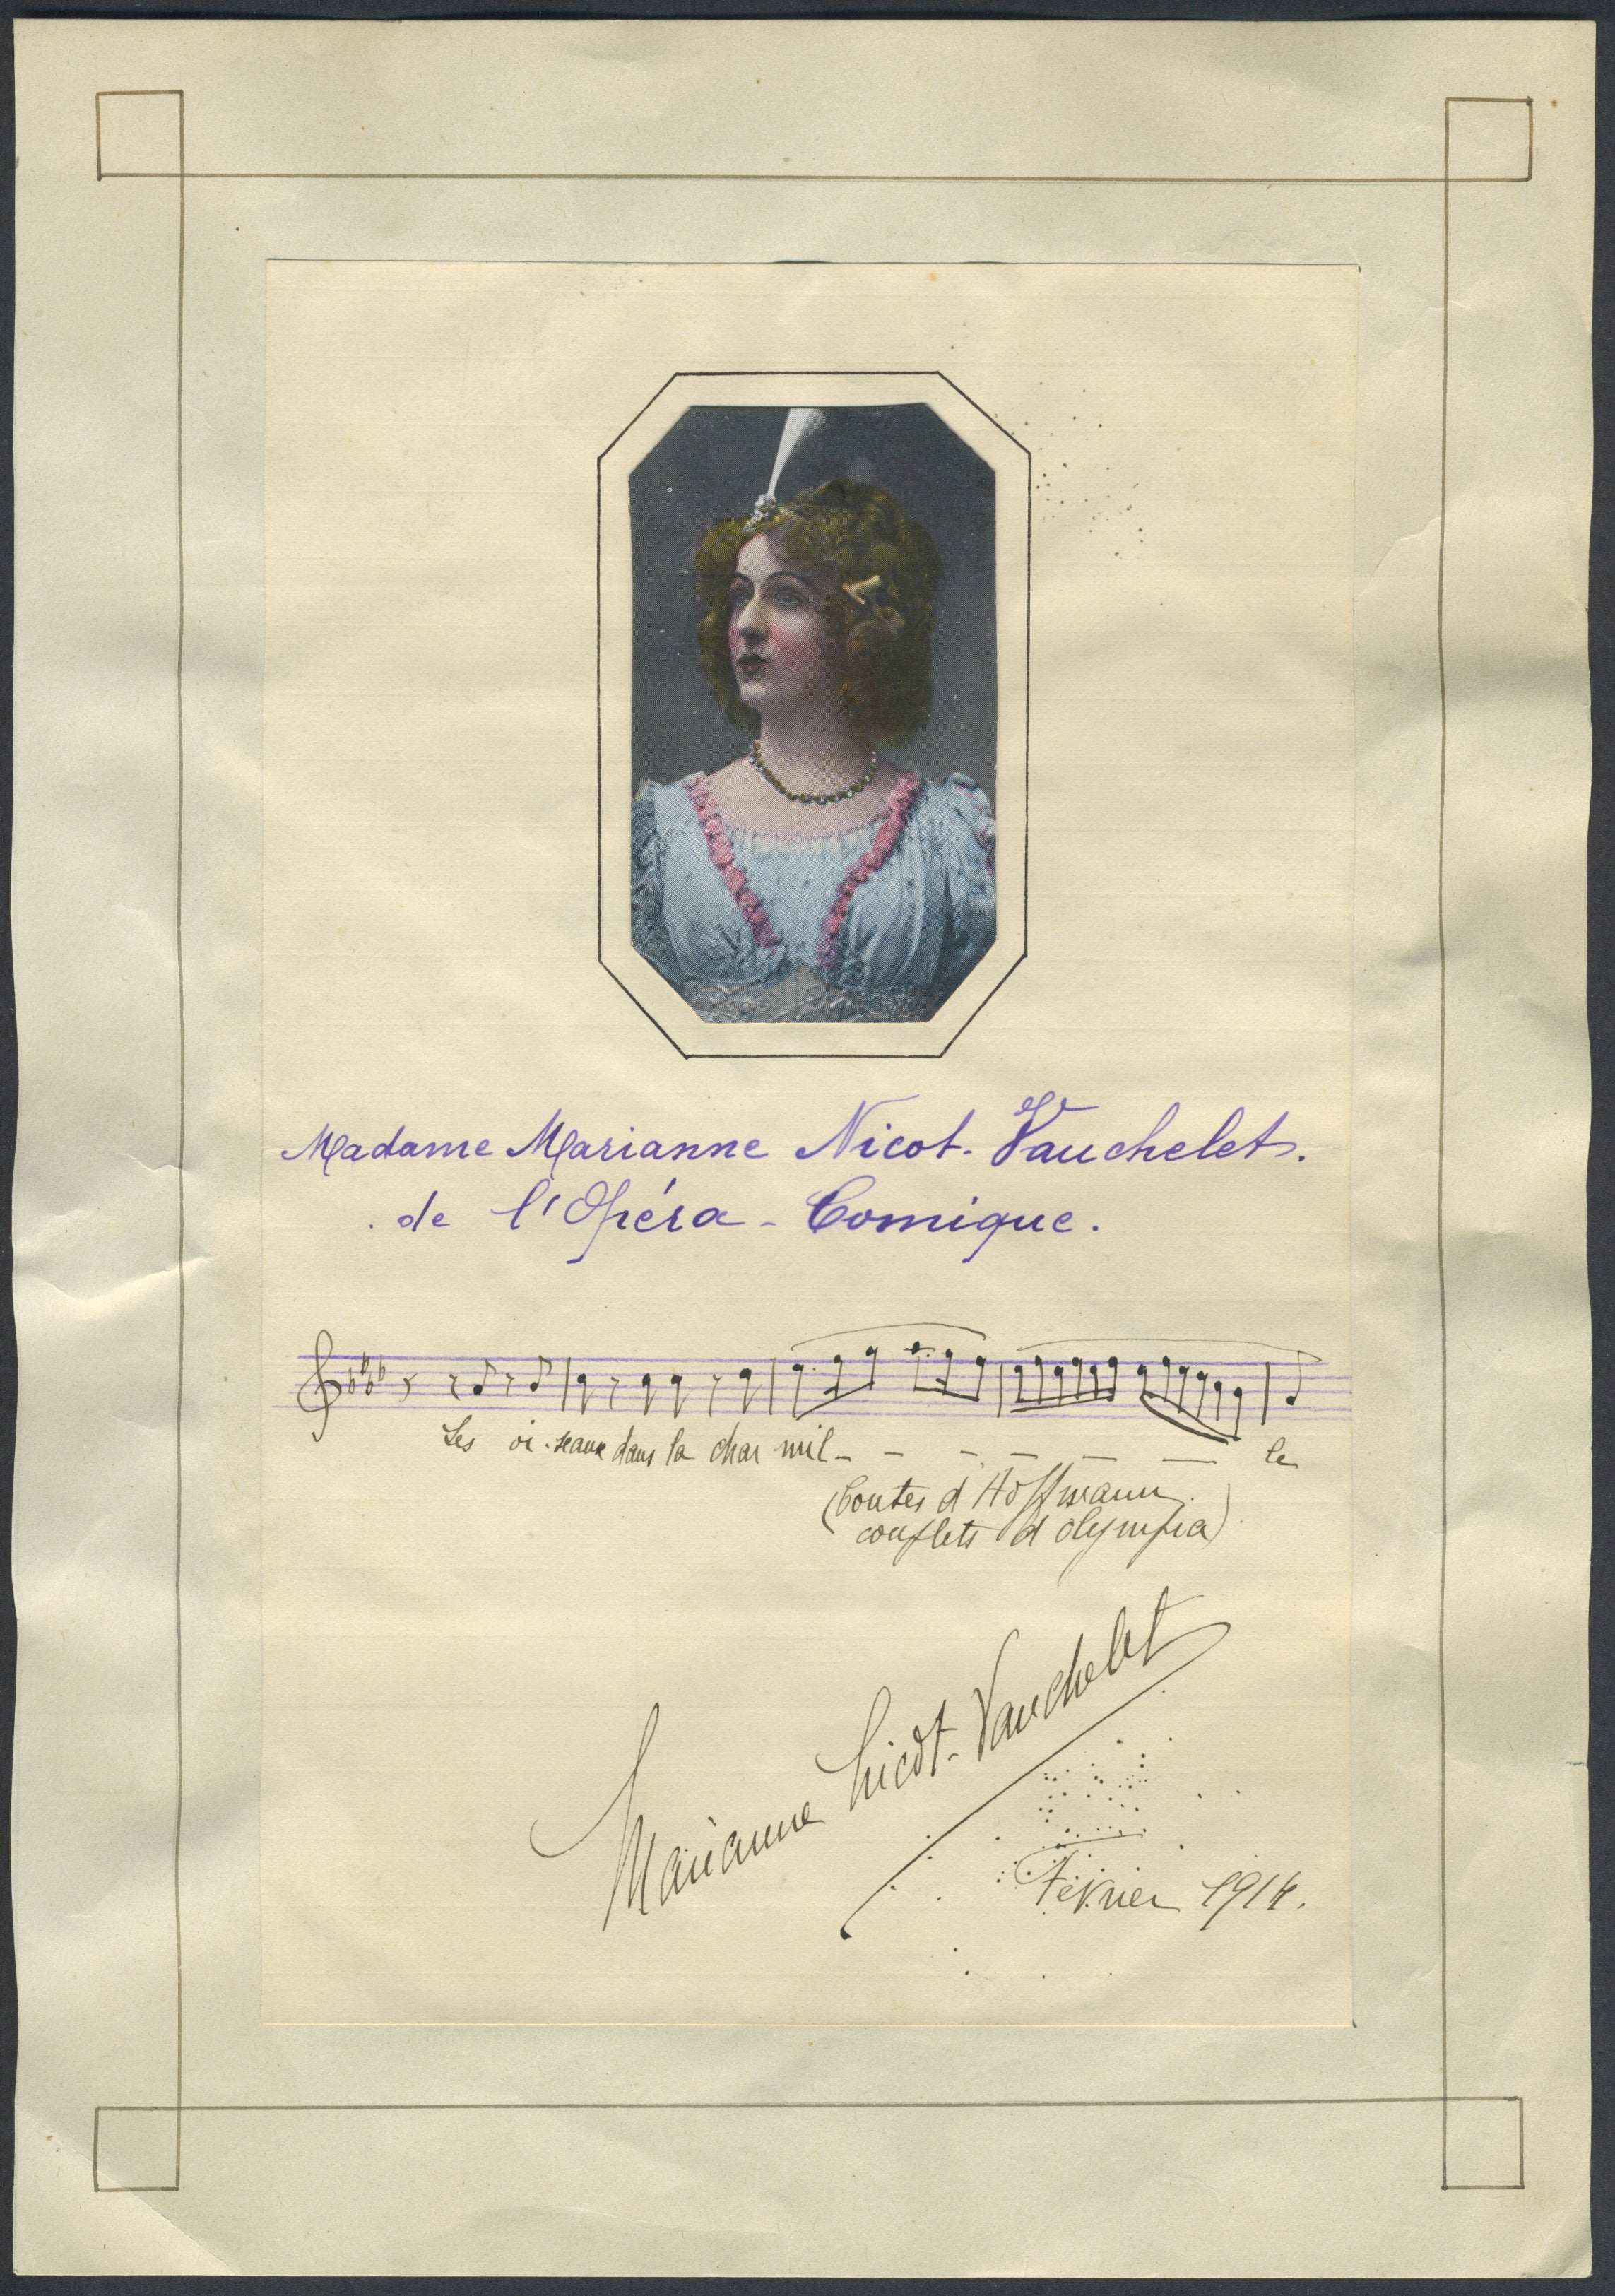 Madame Marianne Nicot-Vauchelet.
de l'Opéra-Comique.
Les oi-seaux dans la char mil- - - - - - le
(Contes d'Hoffmann.
couplets d'olympia)
Marianne Nicot-Vauchelet
Février 1914.